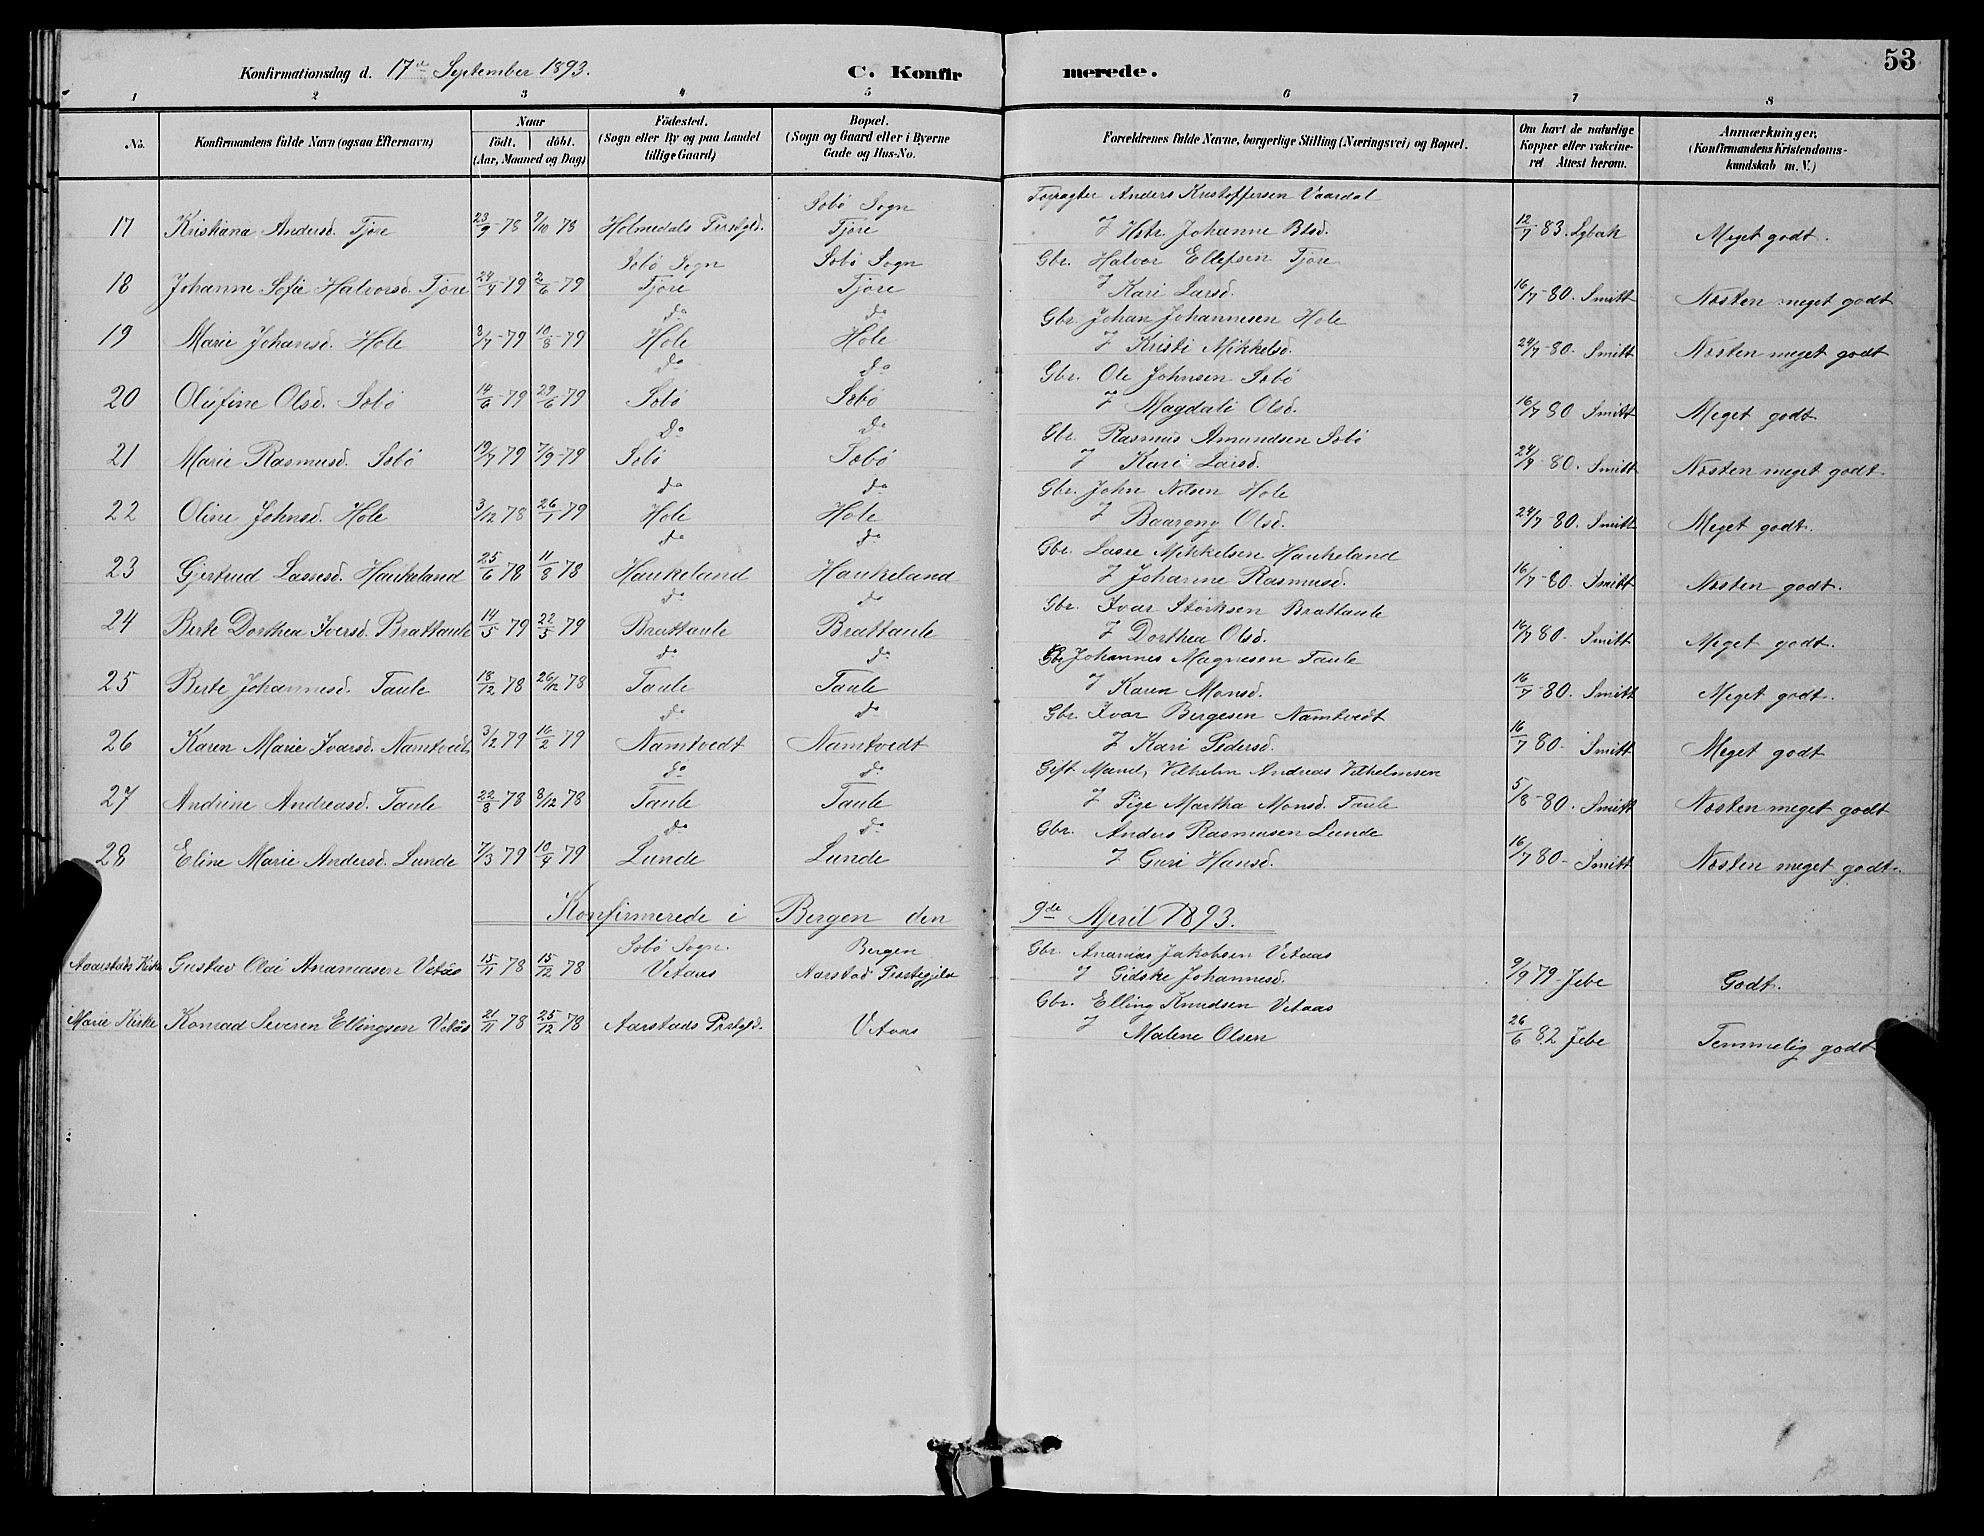 Konfirmationsdag d. 17de September 1893. C. Konfir merede. 53
1 2 3 4 5 6 7 8
No. Konfirmandens fulde Navn (ogsaa Efternavn) Naar födt. döbt. (Aar, Maaned og Dag) Födested. (Sogn eller By og paa Landet tillige Gaard) Bopæl. (Sogn og Gaard eller i Byerne Gade og Hus-No. Forældrenes fulde Navne, borgerlige Stilling (Næringsvei) og Bopæl. Om havt de naturlige Kopper eller vakcineret Attest herom. Anmærkninger. (Konfirmandens Kristendomskundskab m. V.)
Sæbø Sogn Anders Kristoffersen Vaardal
17 Kristiana Andersd. Tjore 23/9-78 9/10 78 Holmedals Prstgld. Tjore J Hstr. Johanne 12/7 83. Lybak Meget godt.
Sæbø Sogn Sæbø Sogn Gbr. Halvor Ellefsen Tjore
18 Johanne Sofie Halvorsd. Tjore 24/4-79 2/6-79 Tjore Tjore J Kari Larsd. 16/7-80. Smitt Næsten meget godt
do do Gbr. Johan Johannesen Hole
19 Marie Johansd. Hole 3/7-79 10/8-79 Hole Hole J Kristi Mikkelsd. 24/7-80. Smitt Næsten meget godt
do do Gbr. Ole Johnsen Sæbø
20 Olufine Olsd. Sæbø 14/6-79 29/6 79 Sæbø Sæbø J Magdali Olsd. 16/7 80 Smitt Meget godt
do do Gbr. Rasmus Amundsen Sæbø
21 Marie Rasmusd. Sæbø 19/7 79 7/9-79 Sæbø Sæbø J Kari Larsd. 24/7 80. Smitt Næsten meget godt
do do Gbr. John Nilsen Hole
22 Oline Johnsd. Hole 3/12 78 26/1 79 Hole Hole J Baarony Olsd. 24/7-80. Smitt Meget godt.
do do Gbr. Lasse Mikkelsen Haukeland
23 Gjertrud Lassesd. Haukeland 25/6 78 11/8 78 Haukeland Haukeland J Johanne Rasmusd. 16/7-80. Smitt Næsten godt.
do do Gbr. Ivar Størksen Brattaule
24 Berte Dorthea Iversd. Brattaule 14/5 79 22/5 79 Brattaule Brattaule J Dorthea Olsd. 16/7 80. Smitt Meget godt.
do do Gbr Johannes Magnesen Taule
25 Berte Johannesd. Taule 18/12 78 26/12 78 Taule Taule J Karen Monsd. 16/7-80. Smitt Meget godt.
do do Gbr. Ivar Bergesen Namtvedt
26 Karen Marie Ivarsd. Namtvedt 3/2 79 16/2 79 Namtvedt Namtvedt J Kari Pedersd. 16/7 80- Smitt Meget godt
do do Gift Mand, Vilhelm Andreas Vilhelmsen
27 Andrine Andreasd. Taule 22/8 78 8/12 78 Taule Taule J Pige Martha Monsd. Taule 5/8-80. Smitt Næsten meget godt
do do Gbr. Anders Rasmusen Lunde
28 Eline Marie Andersd. Lunde 7/3 79 10/4 79 Lunde Lunde J Guri Hansd. 16/7 80- Smitt Næsten meget godt.
Konfirmerede i Bergen den 9de April 1893.
Sæbø Sogn. Bergen Gbr. Ananias Jakobsen Vetaas
Aarstads Kirke Gustav Olai Ananiasen Vetås 15/11 78 15/12 78 Vetaas Aarstad Prstegjeld J Gidske Johannesd. 9/9 79 Jebe Godt.
Gbr. Elling Knudsen Vetaas
Marie Kirke Konrad Severen Ellingsen Vetås 21/11 78 25/12 78 Aarstads Prstgld. Vetaas J Malene Olsen 26/6 82 Jebe Temmelig godt